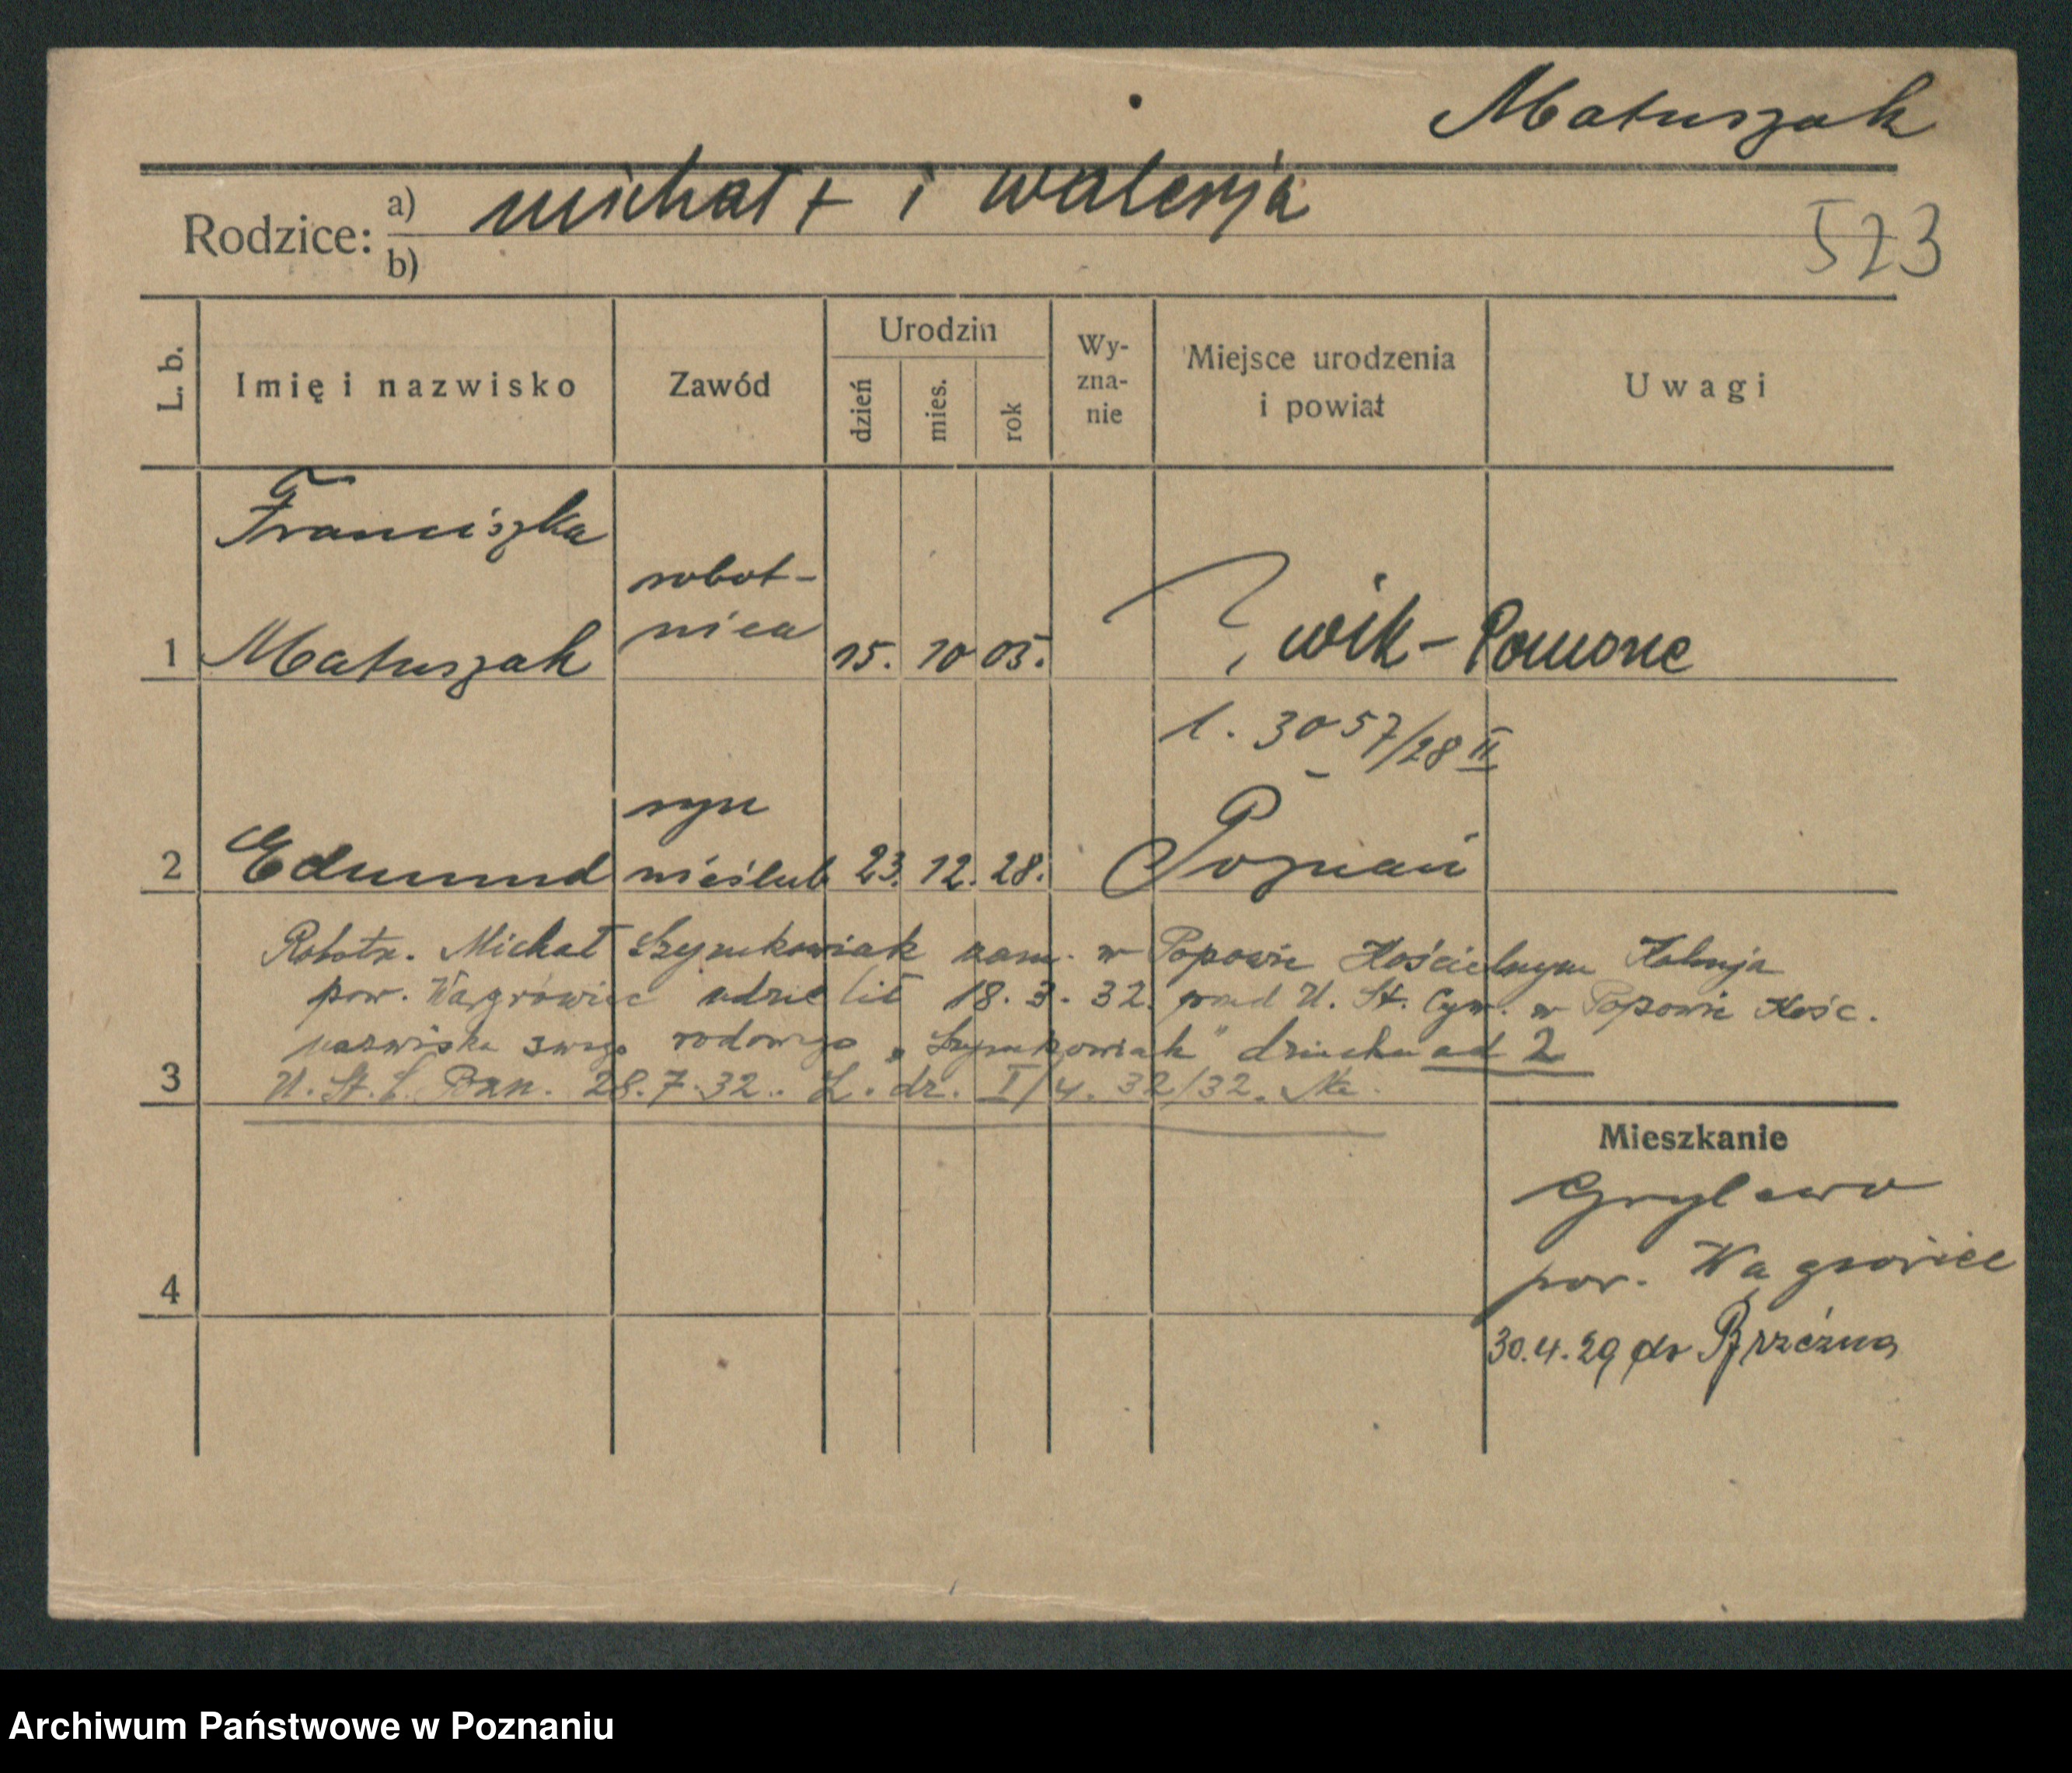 Matuszak
Rodzice: a) michał + i walerja
b)
523
L. b.
Imię i nazwisko
Zawód
Urodzin
dzień
mies.
rok
Wy-
zna-
nie
Miejsce urodzenia
i powiat
Uwagi
Franciszka
robot-
nica
1 Matuszak 15. 10 05. ? wik-Pomorze
l. 3057/28 II
syn
2 Edmund nieślub 23. 12. 28. Poznań
Robotn. Michał Szymkowiak zam. w Popowie Kościelnym Kolonja
pow. Wągrowiec udzielił 18. 3. 32. przed U. St. Cyw. w Popowie Kośc.
nazwiska swego rodowego „Szymkowiak" dziecku ad 2
3 U. St. C. Pzn. 28.7.32. L. dz. I/4. 32/32.
Mieszkanie
Grylewo
pow. Wągrowiec
4
30.4.29 do Brzeźna
Archiwum Państwowe w Poznaniu